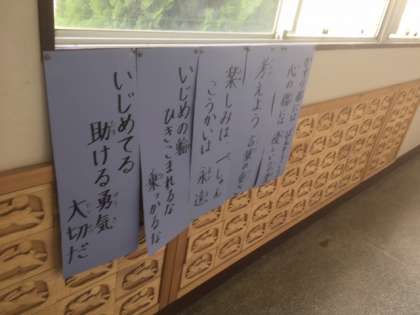 心の傷は
考えよう
言葉の重さ
楽しみは一しゅん
こうかいは永遠
いじめの輪
ひきこまれるな
乗っかるな
いじめてる
助ける勇気
大切だ